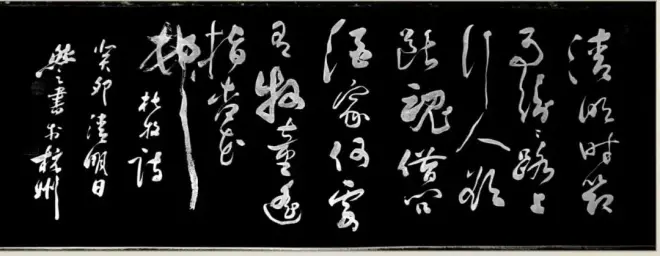 清明时节
雨纷纷路上
行人欲
断魂借问
酒家何处
有牧童遥
指杏花
村
杜牧诗
癸卯清明日
之書於杭州